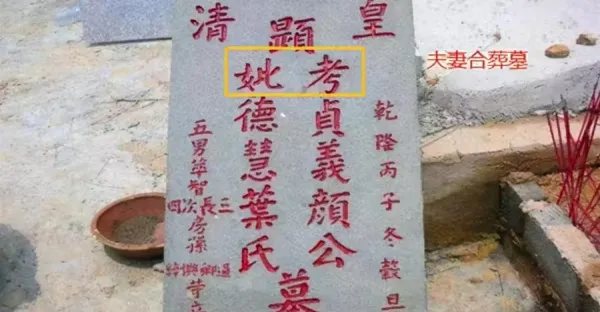 皇
清
乾隆丙子冬穀旦
顯
考貞義顔公
妣德慧葉氏
墓
三長次四房孫
五男華智
夫妻合葬墓